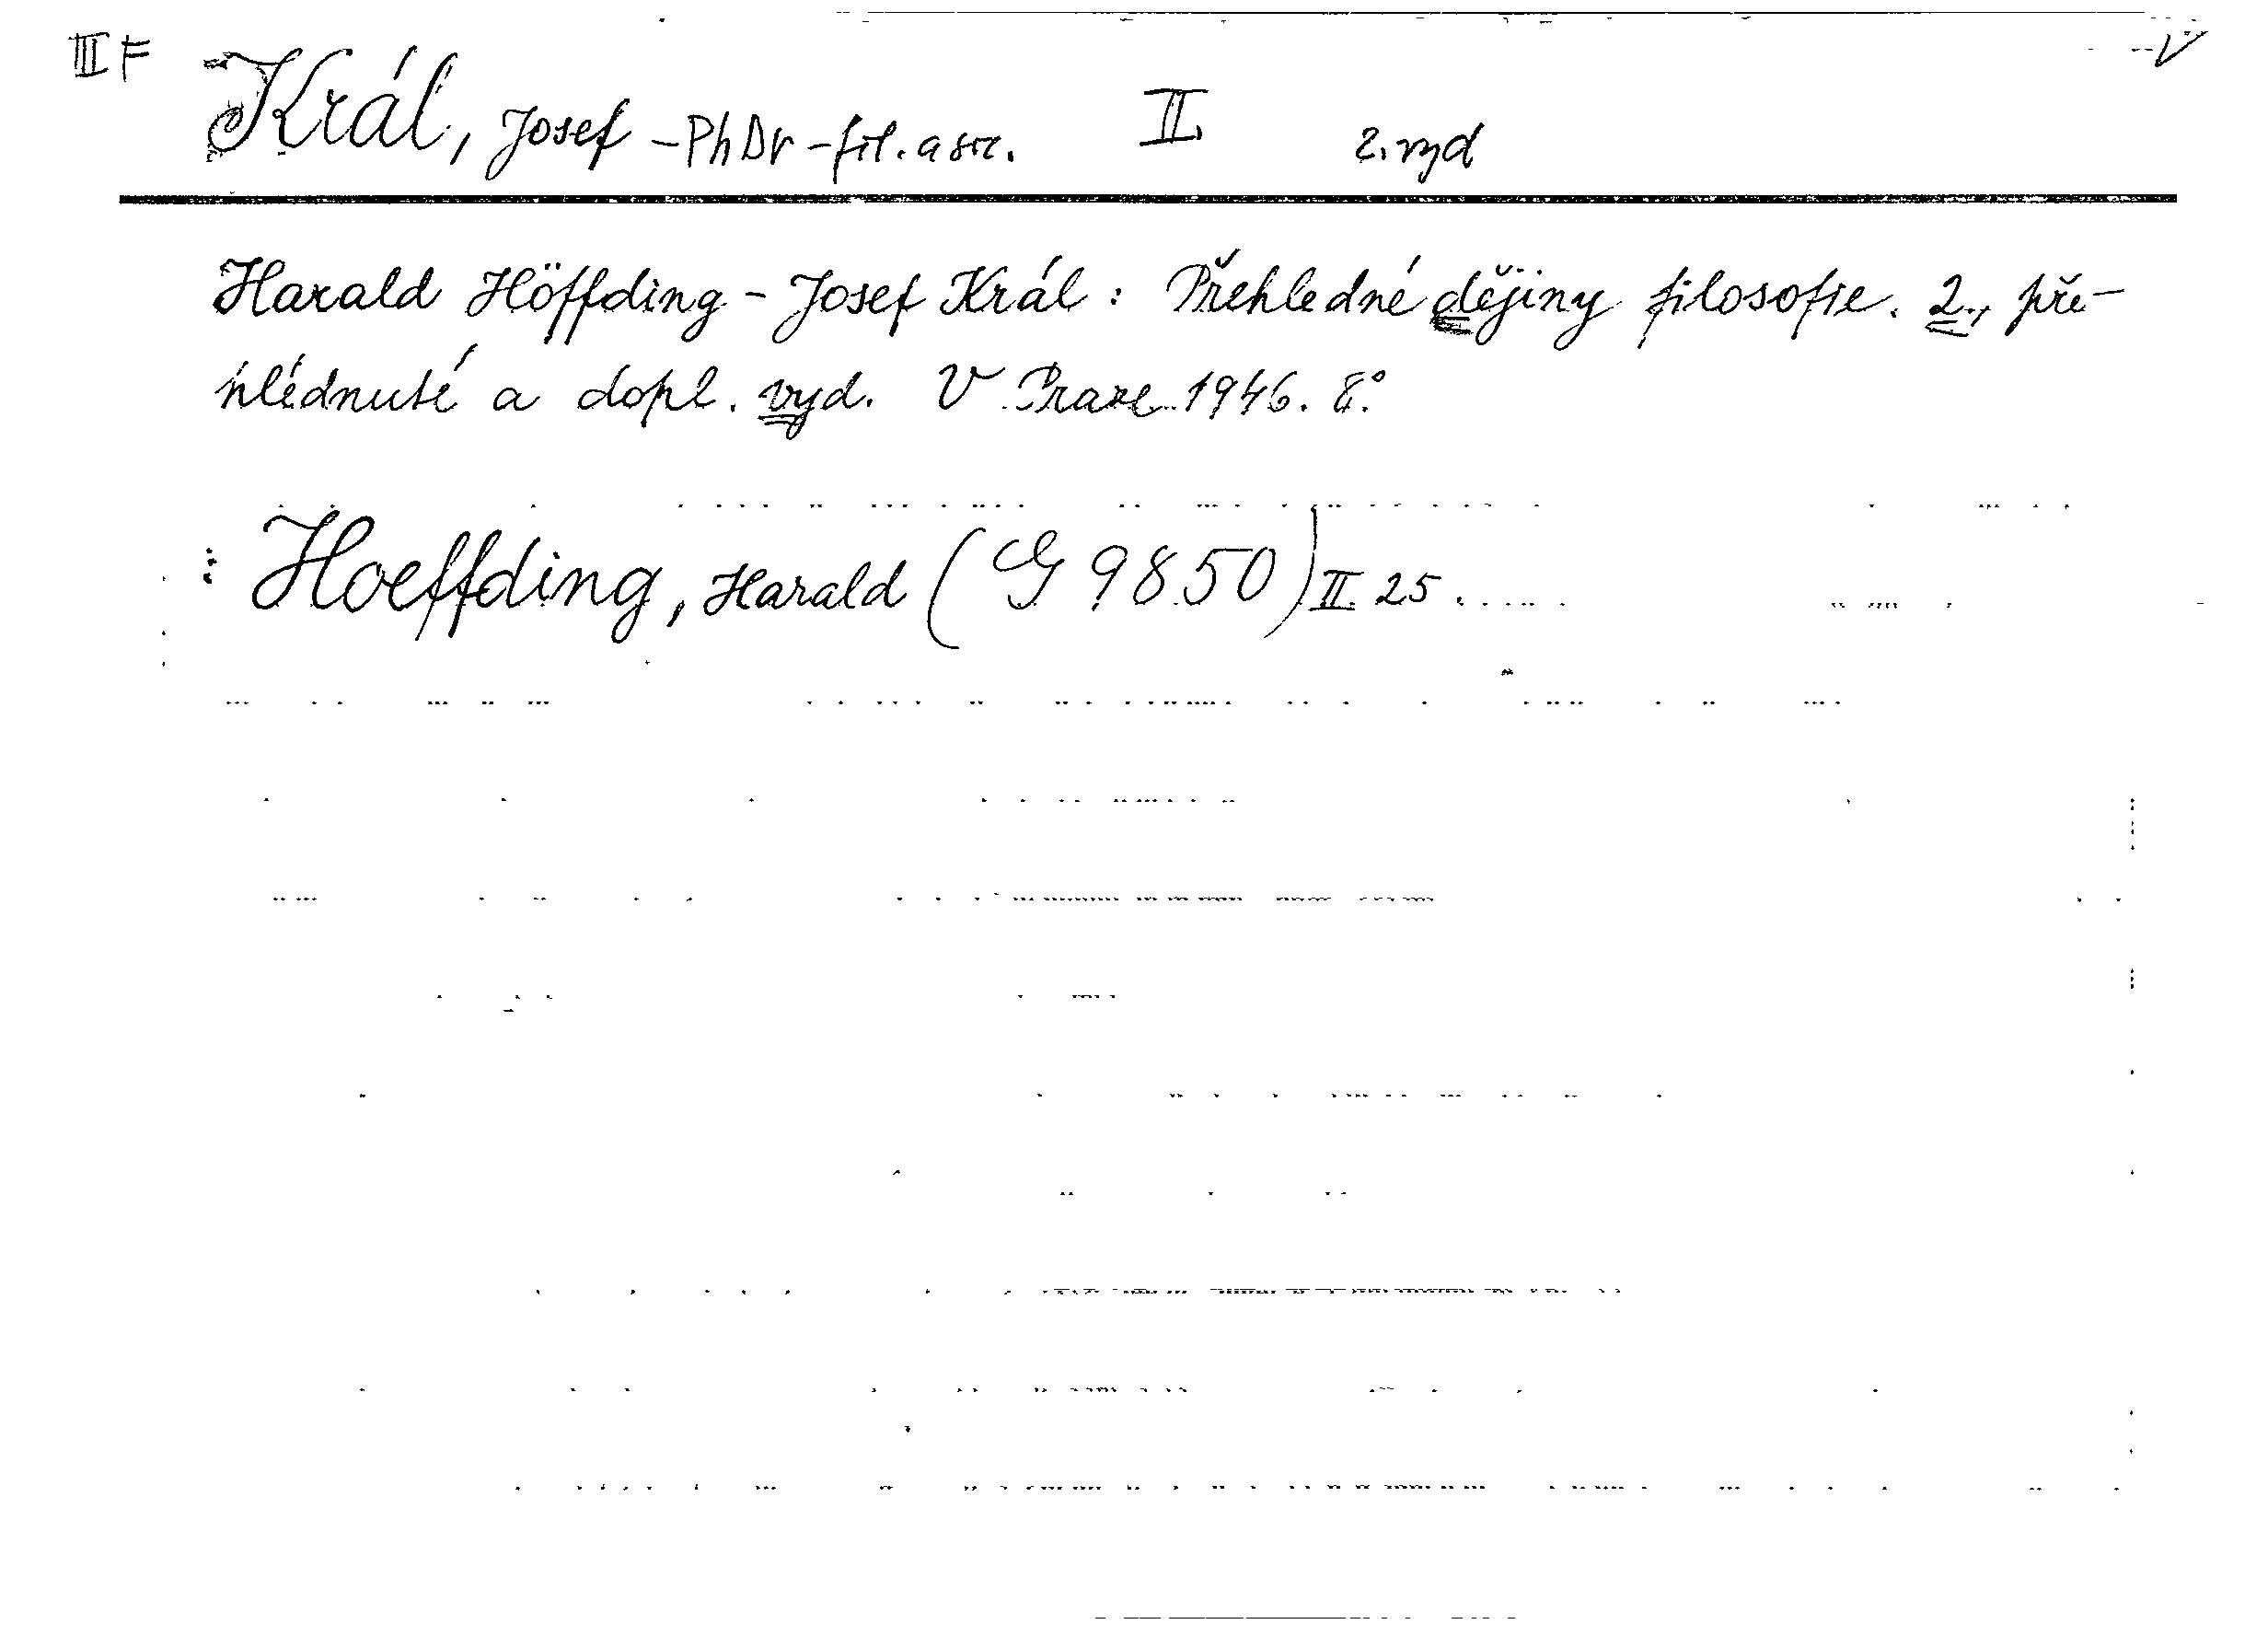 III F Král, Josef - PhDr - fil. a soc. II. 2. vyd V
Harald Höffding - Josef Král : Přehledné dějiny filosofie. 2., pře-
hlédnuté a dopl. vyd. V Praze 1946. 8°.
: Hoeffding, Harald (G 9850) II 25.